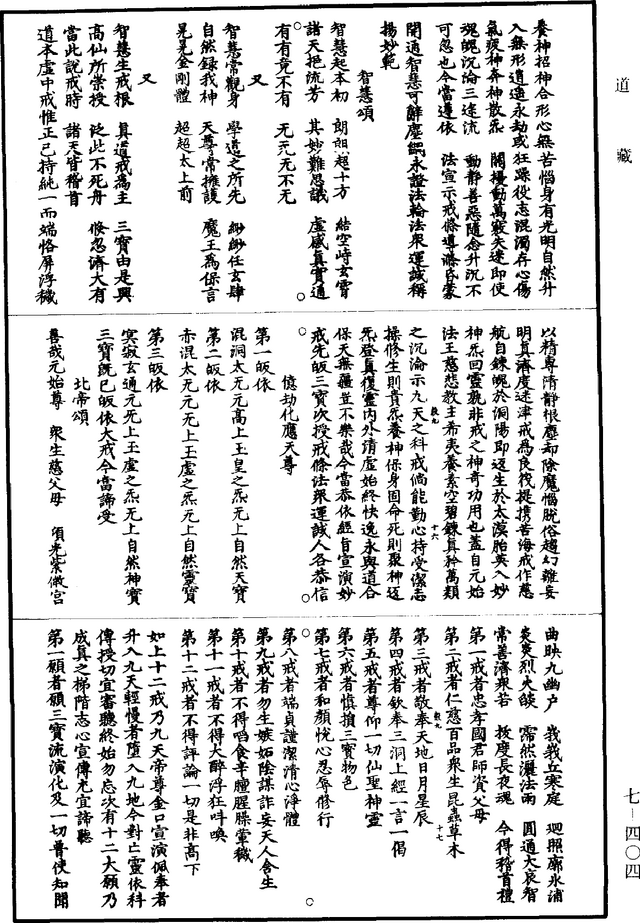 道藏
養神招神合形心無苦惱身有光明自然升
入無形逍遙永劫或狂躁役志混濁存心傷
氣疲神奔神散炁閙擾動萬竅失迷即使
魂魄沉淪三途流動靜善惡隨念升沉不
可忽也今當遵依法宣示戒條導滌昏蒙
開通智慧可辭塵網永證法輪法衆運誠稱
揚妙範
智慧頌
智慧起本初 朗朗超十方 結空峙玄霄
諸天挹流芳 其妙難思議 虛感真實通
有有竟不有 无无无不无
又
智慧常觀身 學道之所先 緲緲任玄肆
自然錄我神 天尊常擁護 魔王爲保言
晃晃金剛體 超超太上前
又
智慧生戒根 真道戒爲主 三寶由是興
高仙所崇授 泛此不死舟 倐忽濟大有
當此說戒時 諸天皆稽首
道本虛中戒惟正已持純一而端恪屏浮穢
以精專淸靜根塵却除魔惱脫俗超幻離妄
明真濟度迷津戒爲良筏提携苦海戒作慈
航自鍊魄於洞陽即返生於太漠胎英入妙
神炁回靈孰非戒之神奇功用也蓋自元始
法王慈悲教主希夷養素空碧鍊真矜萬類
之沉淪示九天之科戒倘能勤心持受潔志
操修生則貴炁養神保身固命死則聚神返
炁登真復靈內外清虛始終快逸永與道合
保天無疆豈不樂哉今當恭依經旨宣演妙
戒先皈三寶次授戒條法衆運誠人各恭信
億劫化應天尊
第一皈依
混洞太无元高上玉皇之炁无上自然天寶
第二皈依
赤混太无元无上玉虛之炁无上自然靈寶
第三皈依
冥寂玄通元无上玉虛之炁无上自然神寶
三寶旣已皈依大戒今當諦受
北帝頌
善哉元始尊 衆生慈父母 項光紫微宫
曲映九幽戶 我我丘寒庭 逈照廓氷浦
炎炎烈火燄 霈然灑法雨 圓通大哀智
常善濟衆苦 救度長夜魂 今得稽首禮
第一戒者忠孝國君師資父母
第二戒者仁慈百品衆生昆蟲草木
第三戒者敬奉天地日月星辰
第四戒者欽奉三洞上經一言一偈
第五戒者尊仰一切仙聖神靈
第六戒者慎擯三寶物色
第七戒者和顏悅心忍辱修行
第八戒者端貞謹潔清心淨體
第九戒者勿生嫉妬陰謀詐妄天人含生
第十戒者不得啗食辛羶腥臊葷穢
第十一戒者不得大醉浮狂呌喚
第十二戒者不得評論一切是非高下
如上十二戒乃九天帝尊金口宣演佩奉者
升入九天輕慢者墮入九地今對亡靈依科
傳授切宜審聽終始勿忘次有十二大願乃
成真之梯階志心宣傳尤宜諦聽
第一願者願三寶流演化及一切普使知聞
七-四〇四